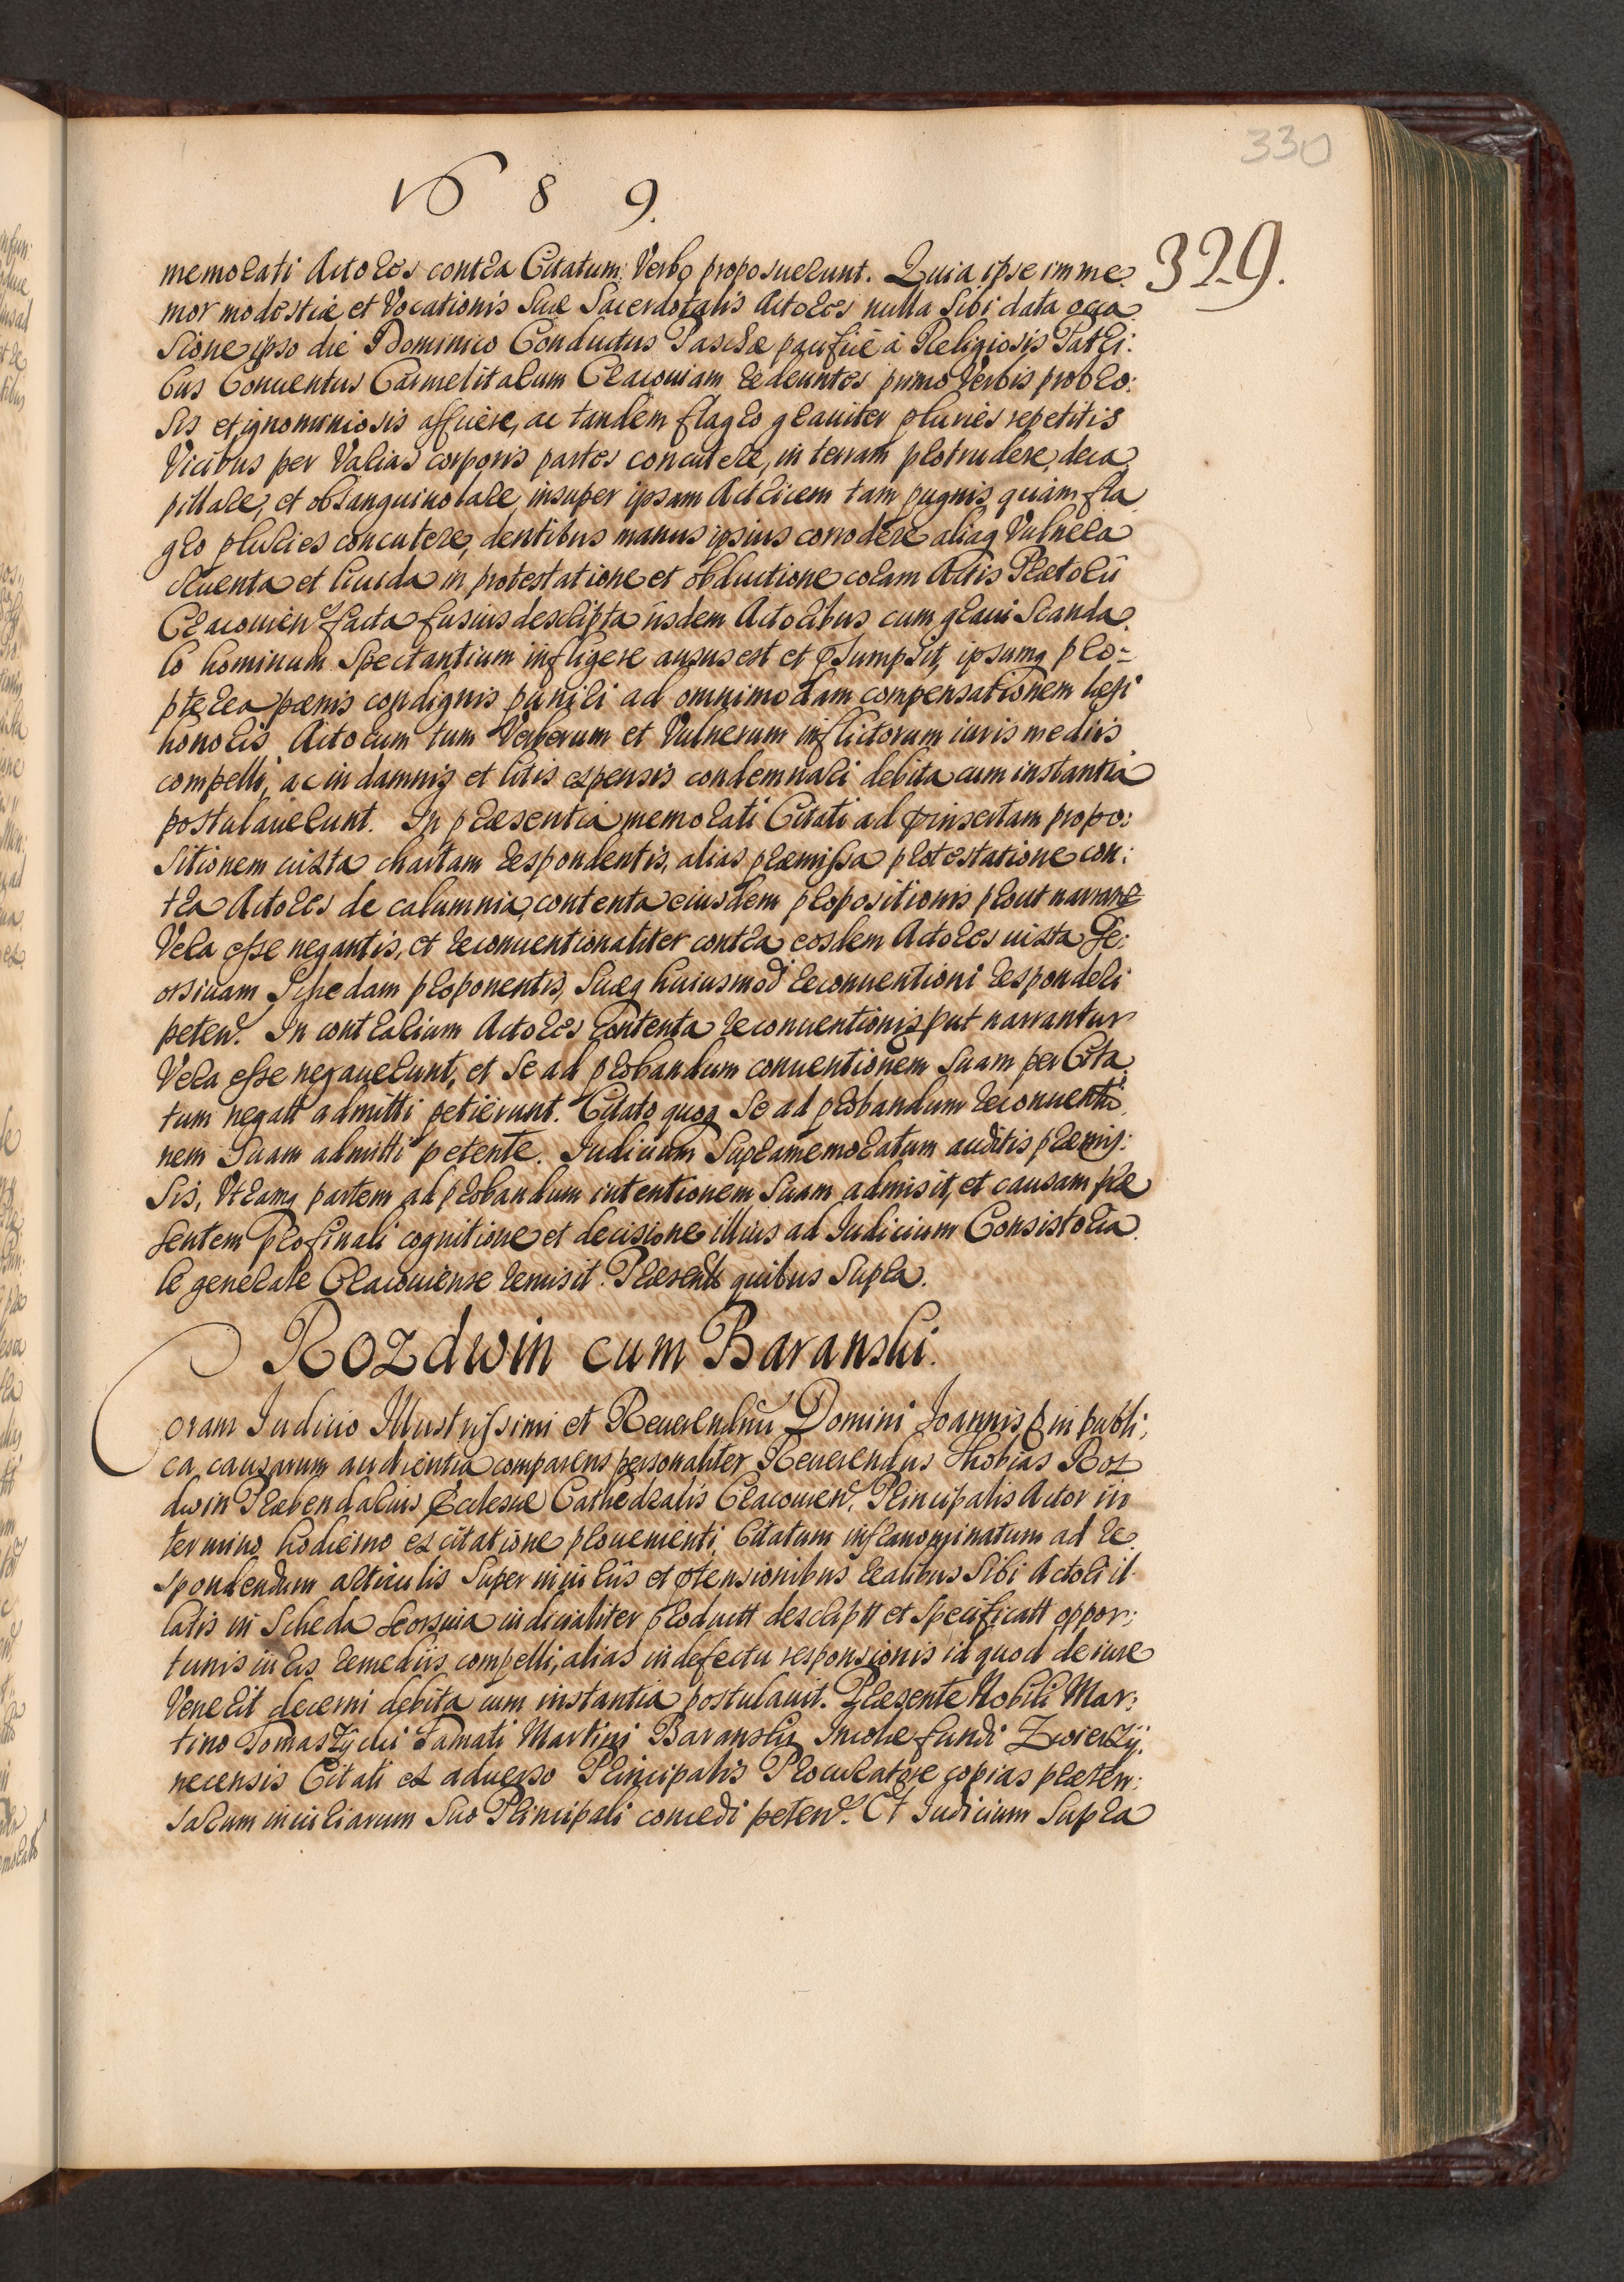 330
1689.
329.
memorati Actores contra Citatum Verbo proposuerunt. Quia ipse imme
mor modestiæ et Vocationis Suæ Sacerdotalis Actores nulla Sibi data occa
Sione ipso die Dominico Conductus Paschæ pacificè à Religiosis Patri:
bus Conuentus Carmelitarum Cracouiam redeuntes primo Verbis probro:
Sis et ignominiosis afficere, ac tandem flagro grauiter pluries repetitis
Vicibus per Varias corporis partes concutere, in terram protrudere, deca
pillare, et obsanguinolare, insuper ipsam Actricem tam pugnis quàm fla
gro pluries concutere, dentibus manus ipsius corrodere aliaq Vulnera
cruenta et liuida in protestatione et obductione coram Actis Prætorÿ
Cracouien facta fusius descripta ÿsdem Actoribus cum graui Scanda
lo hominum Spectantium infligere ausus est et pSumpsit, ipsumq pro=
pterea pœnis condignis puniri ad omnimodam compensationem læsi
honoris Actorum tum Verberum et Vulnerum inflictorum iuris mediis
compelli, ac in damnis et litis expensis condemnari debita cum instantia
postulauerunt. In præsentia memorati Citati ad pinsertam propo:
Sitionem iuxta chartam respondentis, alias præmissa protestatione con:
tra Actores de calumnia, contenta eiusdem propositionis prout narrant
Vera esse negantis, et reconuentionaliter contra eosdem Actores iuxta Se:
orsiuam Schedam proponentis, Suæq huiusmod reconuentioni responderi
peten. In contrarium Actores contenta reconuentionis put narrantur
Vera esse negauerunt, et Se ad probandum conuentionem Suam per Cita
tum negatt admitti petierunt. Citato quoq Se ad probandum reconuentio
nem Suam admitti petente. Iudicium Supramemoratum auditis præmis:
Sis, Vtramq partem ad probandum intentionem Suam admisit, et causam præ
Sentem pro finali cognitione et decisione illius ad Iudicium Consistoria
le generale Cracouiense remisit. Præsentt quibus Supra.
Rozdwin cum Baranski.
Coram Iudicio Illustrissimi et Reuerendmi Domini Joannis p in publi:
ca causarum audientia comparens personaliter Reuerendus Thobias Roz
dwin Præbendarius Ecclesiæ Cathedralis Cracouien, Principalis Actor in
termino hodierno ex citatione prouenienti, Citatum infranominatum ad re
Spondendum articulis Super iniurÿs et ptensionibus realibus Sibi Actori il
latis in Scheda Seorsiua iudicialiter productt descriptt et Specificatt oppor:
tunis iuris remediis compelli, alias in defectu responsionis id quod de iure
Venerit decerni debita cum instantia postulauit. Præsente Nobili Mar:
tino Tomaszÿcki Famati Martini Baranski Incolæ fundi Zwierzÿ:
necensis Citati ex aduerso Principalis Procuratore copias præten:
Sarum iniuriarum Suo Principali concedi peten. Et Iudicium Supra